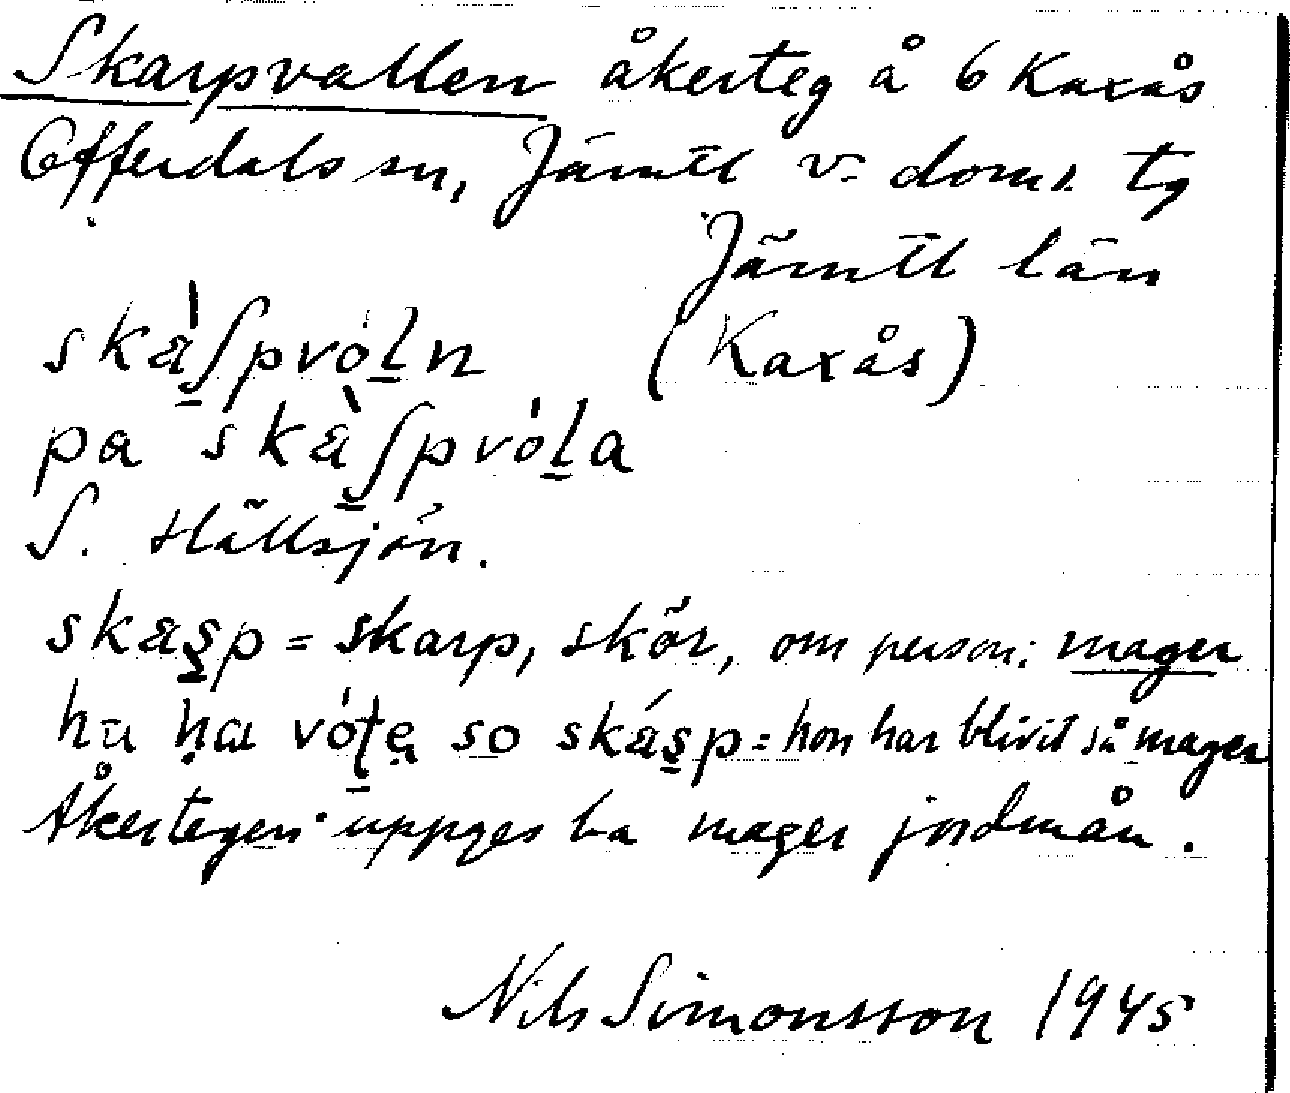 Skarpvallen åkerteg å 6 Kaxås
Offerdals sn, Jämtl v. doms tg
Jämtl län
skàʃpvóḻn (Kaxås)
pa skàʃpvóḻa
S. Hällsjön.
skas̱p = skarp, skör, om person: mager
hū ḥa vóṯẹ so skás̱p = hon har blivit så mager
Åkertegen uppges ha mager jordmån.
Nils Simonsson 1945